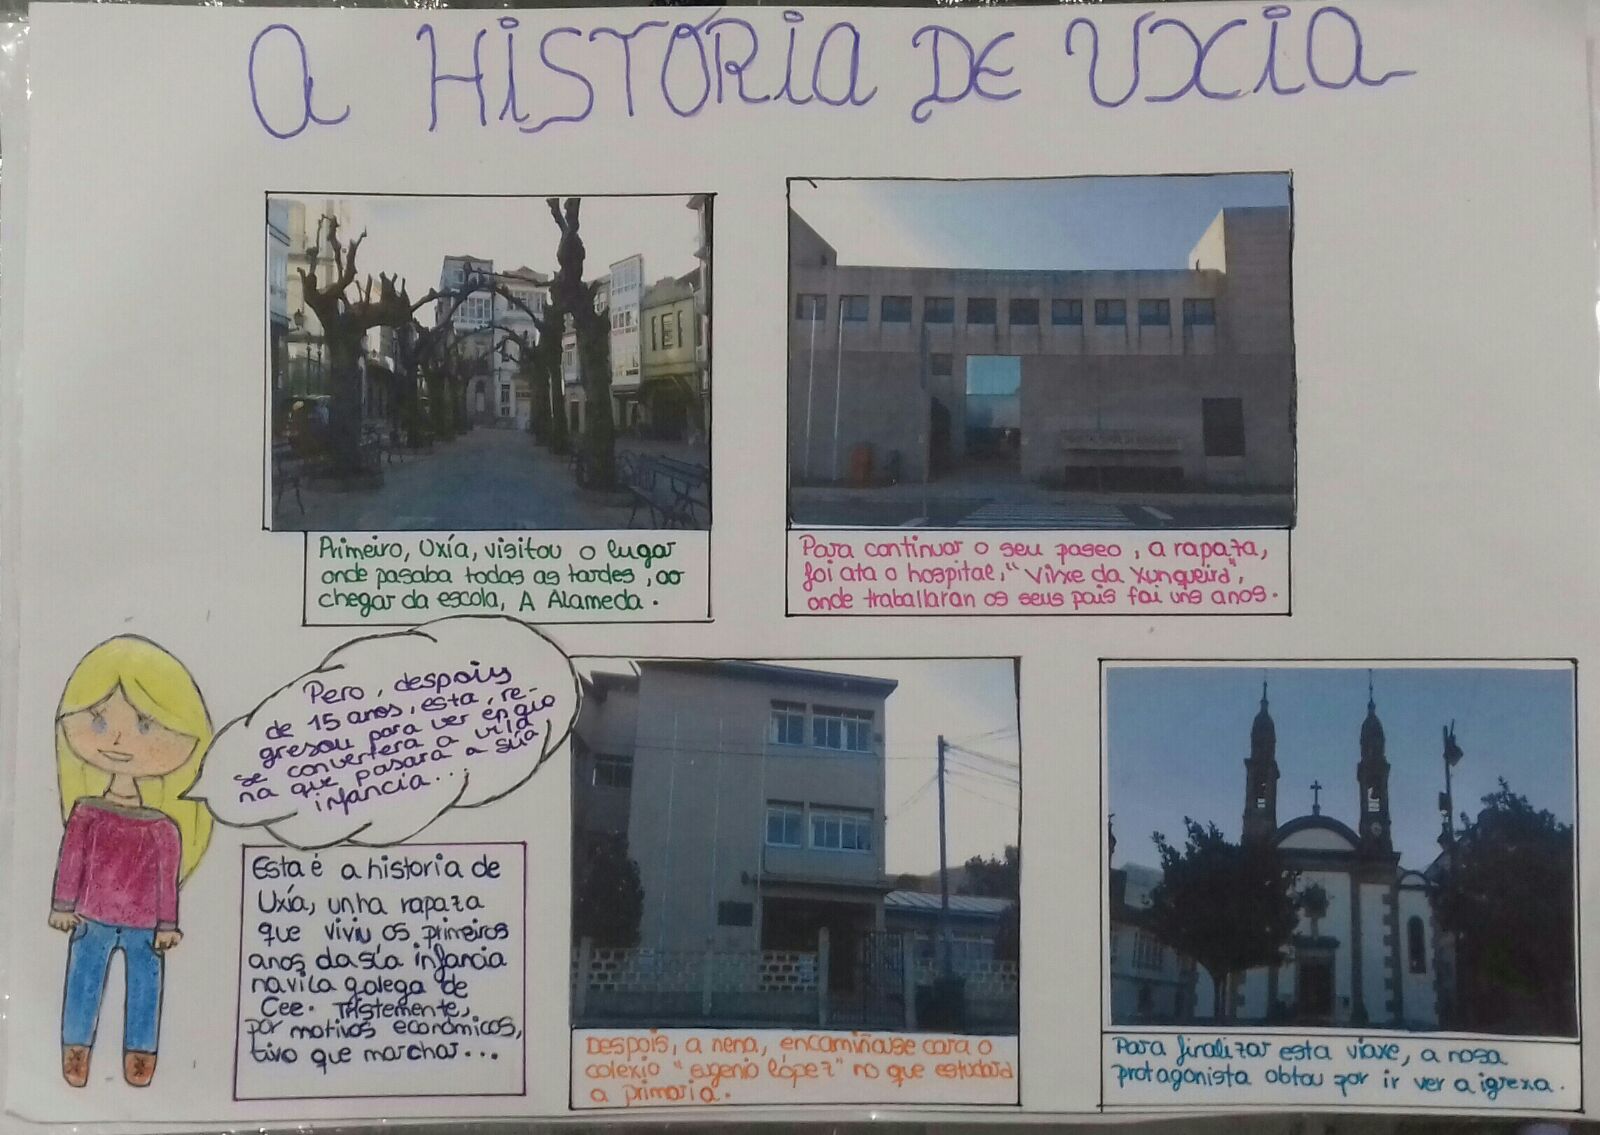 A HISTORIA DE UXIA
Primeiro, Uxía, visitou o lugar
onde pasaba todas as tardes, ao
chegar da escola, A Alameda.
Para continuar o seu paseo, a rapaza,
foi ata o hospital, "Virxe da Xunqueira",
onde traballaran os seus pais fai uns anos.
Pero, despois
de 15 anos, esta, re-
gresou para ver en que
se convertera a vila
na que pasara a súa
infancia...
Esta é a historia de
Uxía, unha rapaza
que viviu os primeiros
anos da súa infancia
na vila galega de
Cee. Tristemente,
por motivos económicos,
tivo que marchar...
Despois, a nena, encamiñouse cara o
colexio "Eugenio López" no que estudara
a primaria.
Para finalizar esta viaxe, a nosa
protagonista obtou por ir ver a igrexa.